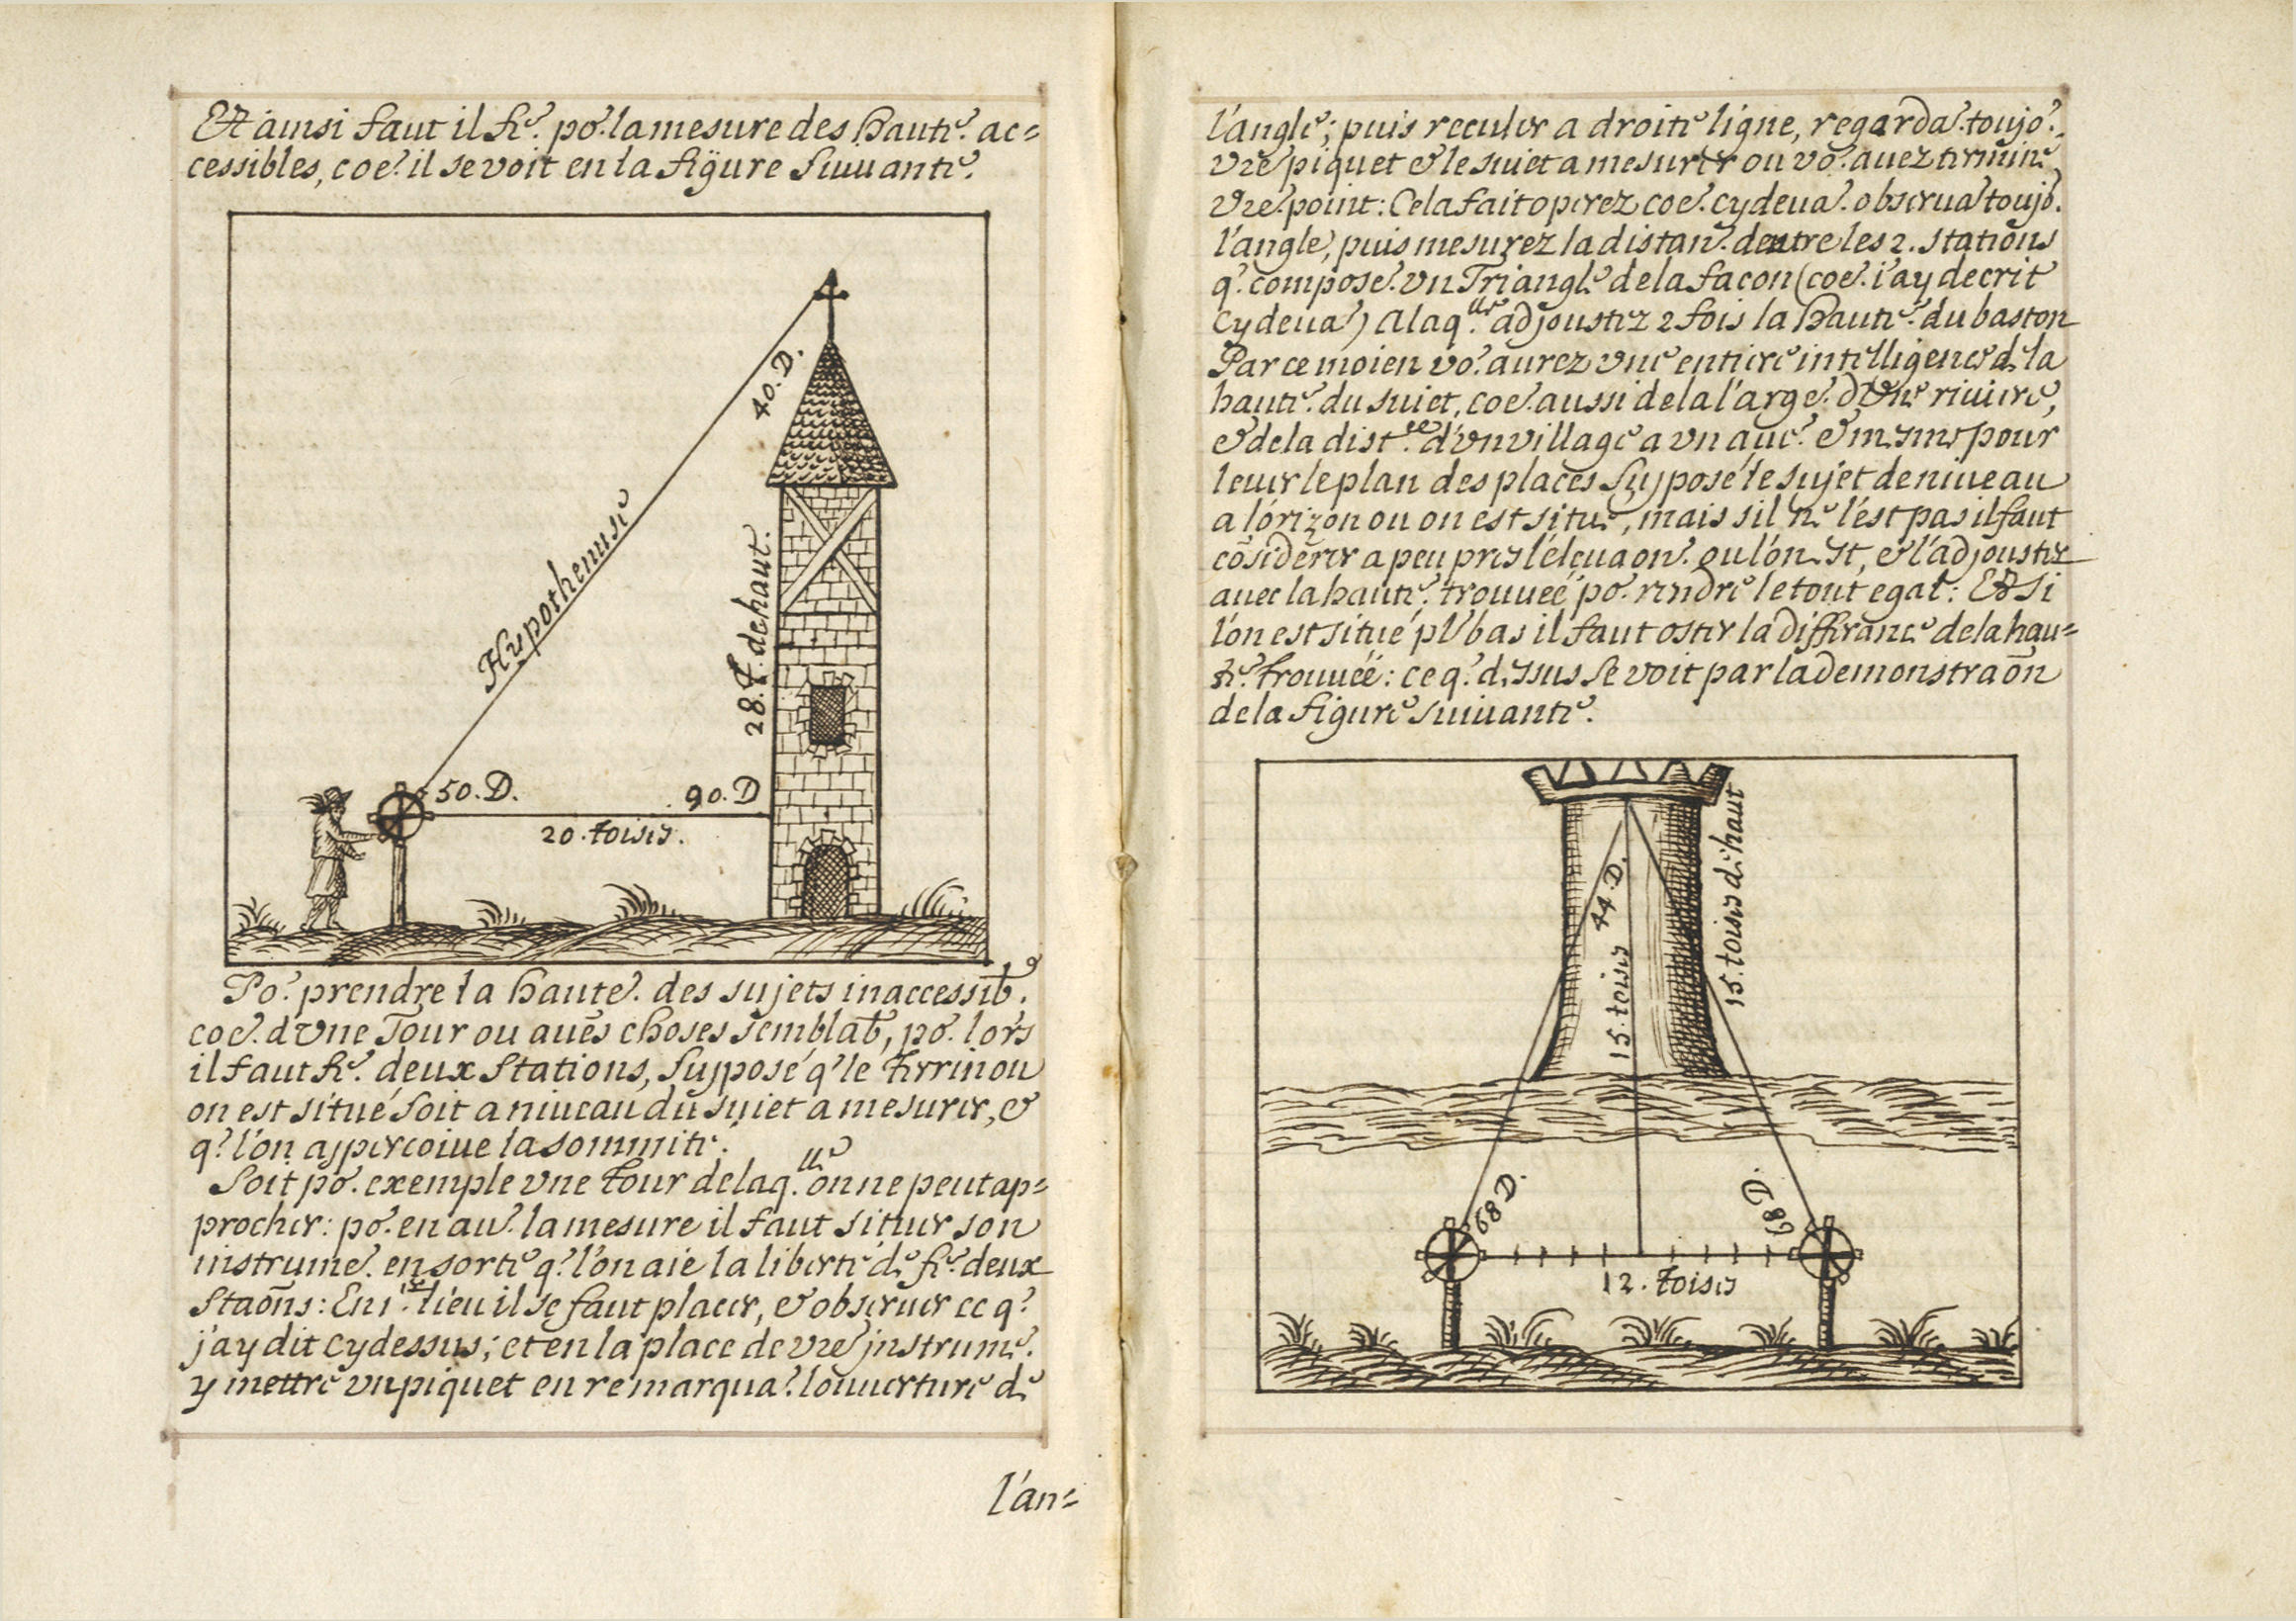 Et ainsi faut il fre. po. la mesure des haute. ac=
cessibles, coe. il se voit en la figure suiuante.
40. D.
Hypothenuse
28. t. de haut.
50. D.
90. D
20. toises.
Po. prendre la haute. des sujets inaccessib.
coe. d'vne Tour ou aues choses semblab, po. lors
il faut fre. deux stations, supposé q' le terrin ou
on est situé soit a niueau du sujet a mesurer, &
q? l'on apperçoiue la sommite.
Soit po. exemple vne tour de laq.lle on ne peut ap=
procher: po. en au. la mesure il faut situer son
instrume. en sorte q? l'on aie la liberté de fre. deux
Staōns: En 1.er lieu il se faut placer, & obseruer ce q?
j'ay dit cy dessus; et en la place de vre jnstrume.
y mettre vn piquet en remarqua? l'ouuerture de
l'an=
l'angle; puis reculer a droite ligne, regarda. toujo.
vre piquet & le suiet a mesurer ou vo. auez terminé
vre. point: Cela fait operez coe. cy deua. obserua toujo.
l'angle, puis mesurez la distan. dentre les 2. stations
q. compose. vn Triangle de la facon (coe. i'ay decrit
cy deua.) A laq.lle adjoustez 2 fois la haute. du baston
Par ce moien vo. aurez vne entiere intelligence de la
haute. du suiet, coe. aussi de la l'arge. d'vne riuiere,
& de la dist.ce d'vn village a vn auc. & mesme pour
leuer le plan des places supposé le sujet de niueau
a l'órizon ou on est situé, mais s'il ne l'est pas il faut
cōsiderer a peu pres l'éleuaon. ou l'on est, & l'adjouster
auec la haute. trouuéé po. rendre le tout egal: Et si
l'on est situé pl' bas il faut oster la differance de la hau=
te. trouuéé: ce q. dessus se voit par la demonstraōn
de la figure suiuante.
44. D.
15. toises
15. toises de haut
68 D.
68 D.
12. toises